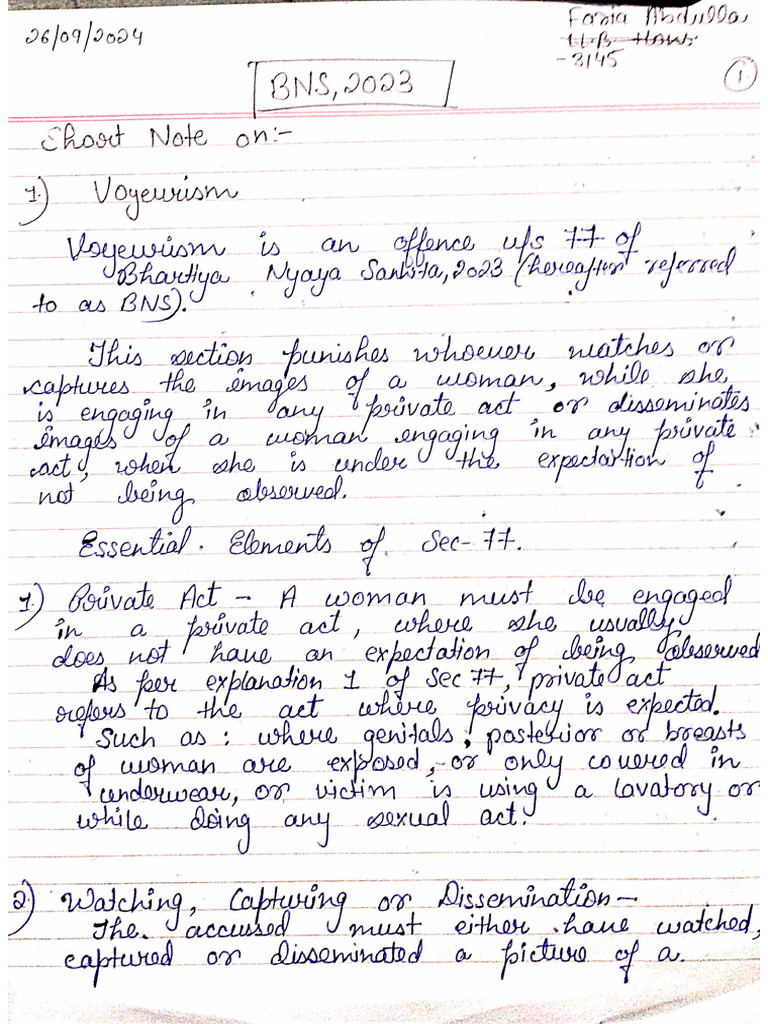 26/09/2024
Fozia Abdulla
LL.B Hons
- 3145
1.
BNS, 2023
Short Note on:-
1.) Voyeurism
Voyeurism is an offence u/s 77 of
Bhartiya Nyaya Sanhita, 2023 (hereafter referred
to as BNS).
This section punishes whoever watches or
captures the images of a woman, while she
is engaging in any private act or disseminates
images of a woman engaging in any private
act, when she is under the expectation of
not being observed.
Essential Elements of Sec-77.
1.) Private Act - A woman must be engaged
in a private act, where she usually
does not have an expectation of being observed
As per explanation 1 of Sec 77, private act
refers to the act where privacy is expected.
Such as : where genitals, posterior or breasts
of woman are exposed, or only covered in
underwear, or victim is using a lavatory or
while doing any sexual act.
2.) Watching, Capturing or Dissemination -
The accussed must either have watched,
captured or disseminated a picture of a